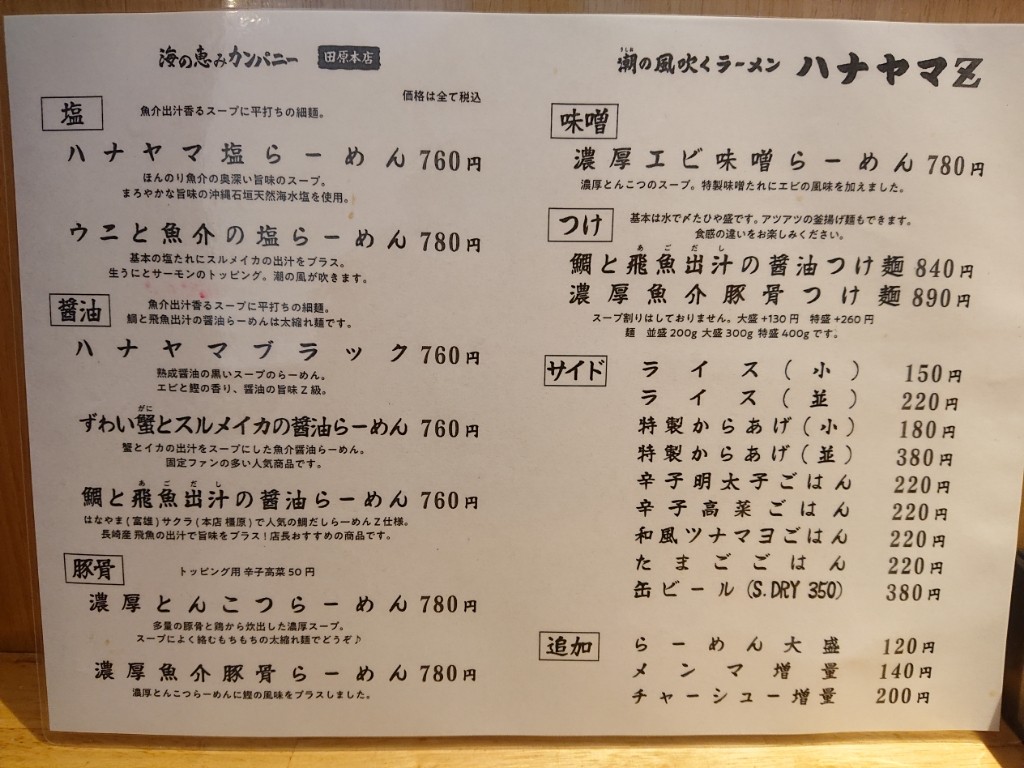 海の恵みカンパニー 田原本店
価格は全て税込
塩 魚介出汁香るスープに平打ちの細麺。
ハナヤマ塩らーめん 760円
ほんのり魚介の奥深い旨味のスープ。
まろやかな旨味の沖縄石垣天然海水塩を使用。
ウニと魚介の塩らーめん 780円
基本の塩たれにスルメイカの出汁をプラス。
生うにとサーモンのトッピング。潮の風が吹きます。
醤油 魚介出汁香るスープに平打ちの細麺。
鯛と飛魚出汁の醤油らーめんは太縮れ麺です。
ハナヤマブラック 760円
熟成醤油の黒いスープのらーめん。
エビと鰹の香り、醤油の旨味Z級。
がに
ずわい蟹とスルメイカの醤油らーめん 760円
蟹とイカの出汁をスープにした魚介醤油らーめん。
固定ファンの多い人気商品です。
あごだし
鯛と飛魚出汁の醤油らーめん 760円
はなやま(富雄)サクラ(本店 橿原)で人気の鯛だしらーめんZ仕様。
長崎産 飛魚の出汁で旨味をプラス!店長おすすめの商品です。
豚骨 トッピング用 辛子高菜50円
濃厚とんこつらーめん 780円
多量の豚骨と鶏から炊出した濃厚スープ。
スープによく絡むもちもちの太縮れ麺でどうぞ♪
濃厚魚介豚骨らーめん 780円
濃厚とんこつらーめんに鰹の風味をプラスしました。
潮の風吹くラーメン ハナヤマZ
味噌
濃厚エビ味噌らーめん 780円
濃厚とんこつのスープ。特製味噌たれにエビの風味を加えました。
つけ 基本は水で〆たひや盛です。アツアツの釜揚げ麺もできます。
食感の違いをお楽しみください。
あごだし
鯛と飛魚出汁の醤油つけ麺 840円
濃厚魚介豚骨つけ麺 890円
スープ割りはしておりません。大盛+130円 特盛+260円
麺 並盛200g 大盛300g 特盛400gです。
サイド ライス(小) 150円
ライス(並) 220円
特製からあげ(小) 180円
特製からあげ(並) 380円
辛子明太子ごはん 220円
辛子高菜ごはん 220円
和風ツナマヨごはん 220円
たまごごはん 220円
缶ビール(S.DRY 350) 380円
追加 らーめん大盛 120円
メンマ増量 140円
チャーシュー増量 200円